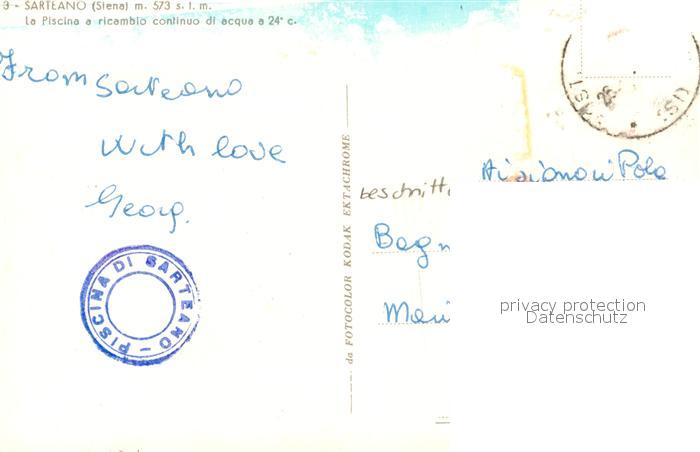 3 - SARTEANO (Siena) m. 573 s. l. m.
La Piscina a ricambio continuo di acqua a 24° c.
From Sarteano
With love
Georg.
PISCINA DI SARTEANO -
da FOTOCOLOR KODAK EKTACHROME
beschnitt
Pola
Bagn
privacy protection
Datenschutz